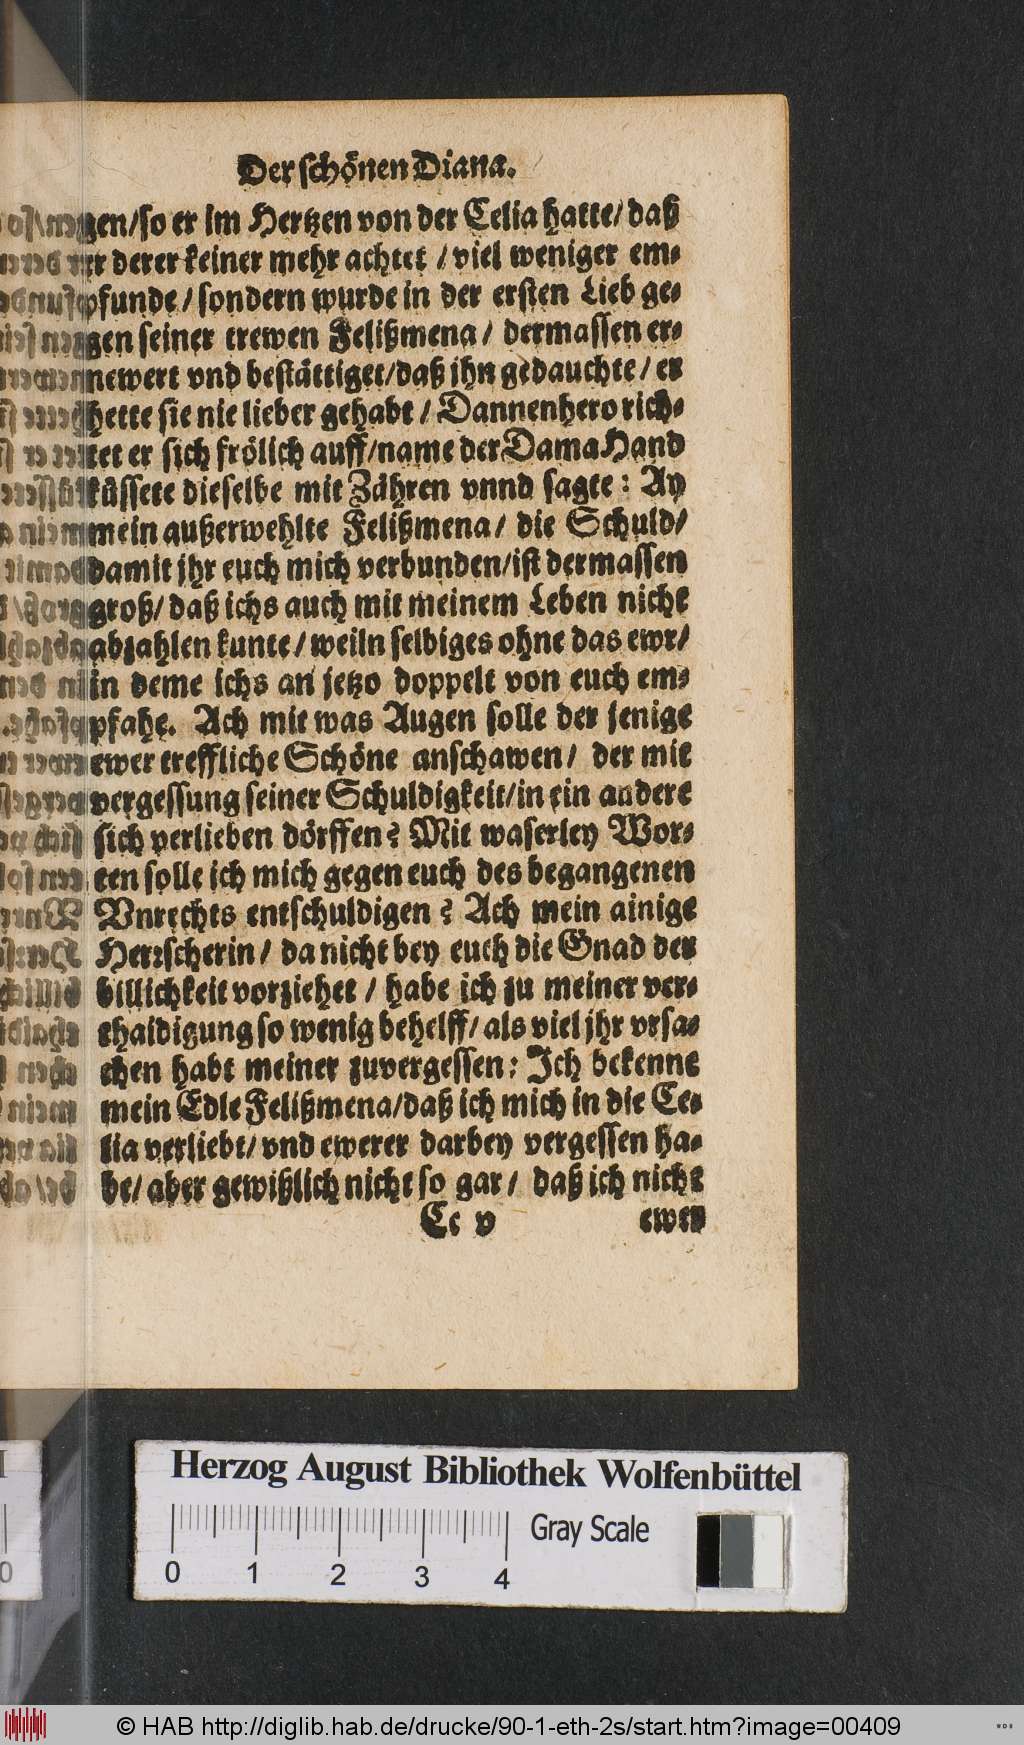 Der schönen Diana.
gen/so er im Hertzen von der Celia hatte/ daß
er derer keiner mehr achtet / viel weniger em-
pfunde / sondern wurde in der ersten Lieb ge-
gen seiner trewen Felißmena / dermassen er-
newert vnd bestättiget/daß jhn gedauchte / er
hette sie nie lieber gehabt / Dannenhero rich-
tet er sich frölich auff/name der Dama Hand
küssete dieselbe mit Zähren vnnd sagte: Ay
mein außerwehlte Felißmena / die Schuld/
damit jhr euch mich verbunden/ist dermassen
groß/ daß ichs auch mit meinem Leben nicht
abzahlen kunte / weiln selbiges ohne das ewr/
in deme ichs an jetzo doppelt von euch em-
pfahe. Ach mit was Augen solle der jenige
ewer treffliche Schöne anschawen / der mit
vergessung seiner Schuldigkeit/in ein andere
sich verlieben dörffen? Mit waserley Wor-
ten solle ich mich gegen euch des begangenen
Vnrechts entschuldigen? Ach mein ainige
Herrscherin / da nicht bey euch die Gnad der
billichkeit vorziehet / habe ich zu meiner ver-
thaidigung so wenig behelff/ als viel jhr vrsa-
chen habt meiner zuvergessen: Ich bekenne
mein Edle Felißmena/daß ich mich in die Ce-
lia verliebt/ vnd ewerer darbey vergessen ha-
be/ aber gewißlich nicht so gar / daß ich nicht
Cc v ewer
Herzog August Bibliothek Wolfenbüttel
Gray Scale
0 1 2 3 4
© HAB http://diglib.hab.de/drucke/90-1-eth-2s/start.htm?image=00409